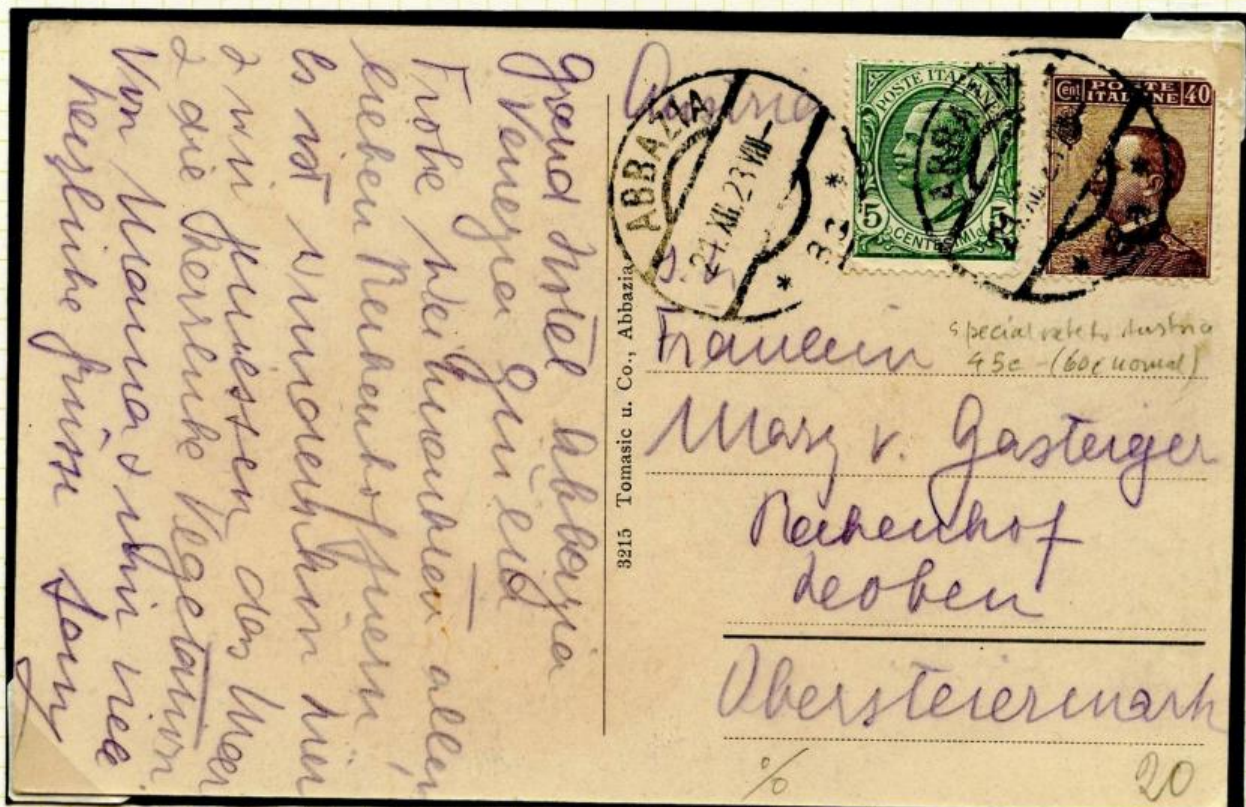 Grand Hotel Abbazia
Venezia Giulia
Frohe Weihnachten allen
lieben
Es ist wunderschön hier
& wir geniessen das Meer
& die herrliche Vegetation.
Von Mama & mir viele
herzliche Grüsse
3215 Tomasic u. Co., Abbazia
Austria
ABBAZIA
21.XII.23.VIII-
* 3 2 *
POSTE ITALIANE
5 CENTESIMI 5
Cent POSTE ITALIANE 40
special rate to Austria
45c - (60c normal)
Fräulein
Mary v. Gasteiger
Rebenhof
Leoben
Obersteiermark
%
20